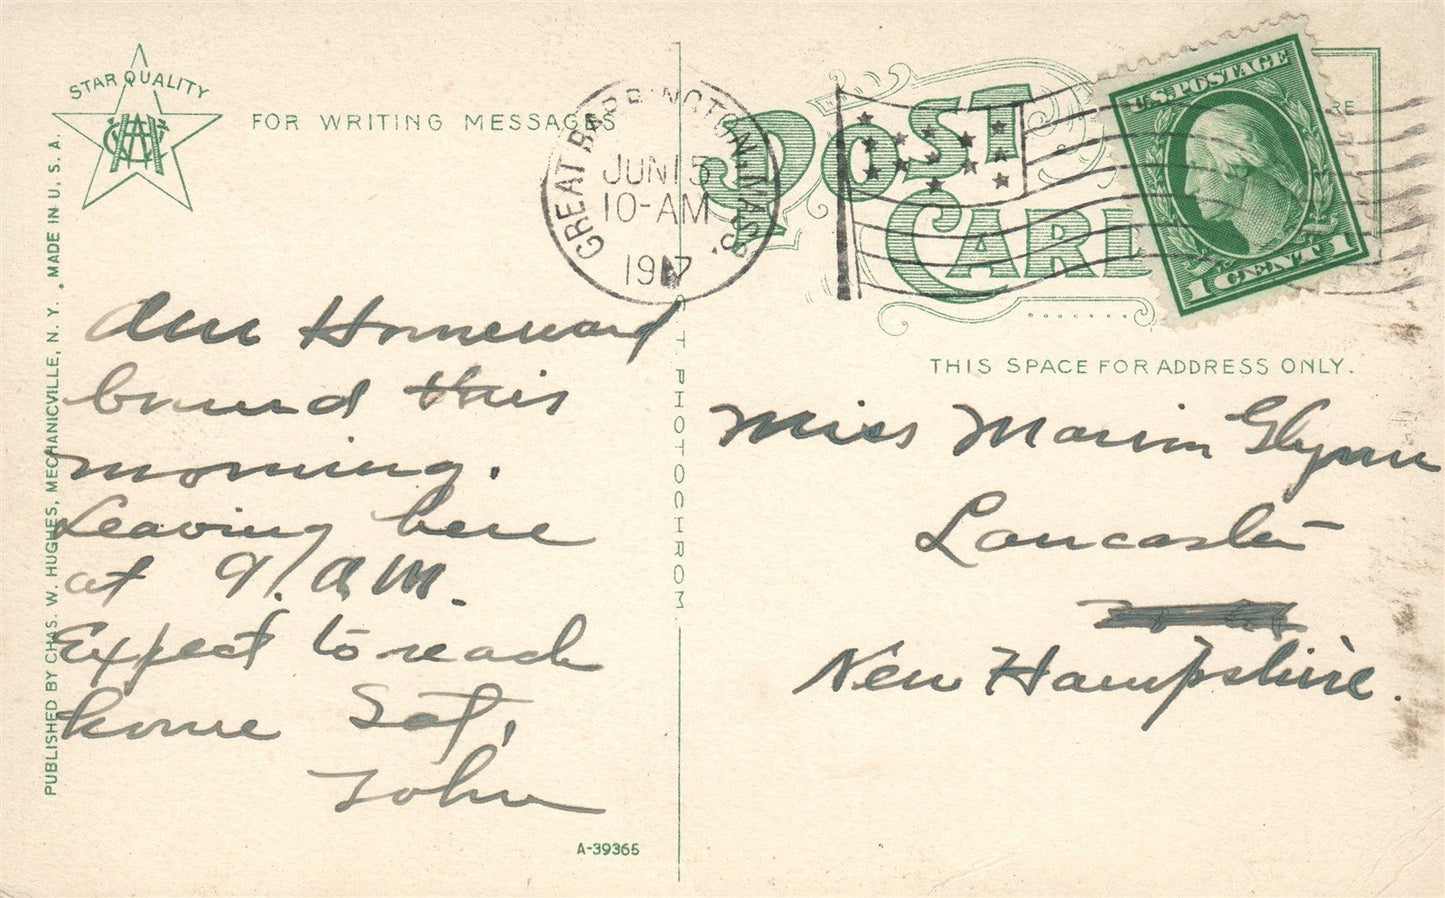 STAR QUALITY
FOR WRITING MESSAGES
PUBLISHED BY CHAS. W. HUGHES, MECHANICVILLE, N. Y. . MADE IN U. S. A.
Am Homeward
bound this
morning.
Leaving here
at 9. A.M.
Expect to reach
home Sat,
John
A-39365
C. T. PHOTOCHROM
GREAT BARRINGTON, MASS.
JUN 15
10-AM
1917
POST
CARD
RE
U.S. POSTAGE
1 CENT 1
THIS SPACE FOR ADDRESS ONLY.
Miss Marion Glynn
Lancaster
New Hampshire.